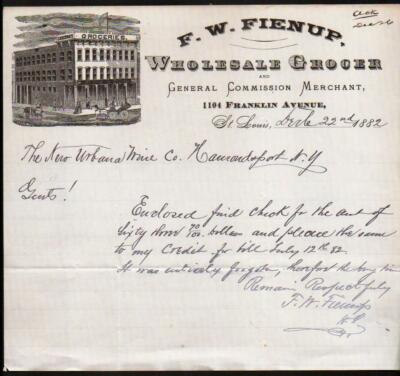 Ack
Dec 26
GROCERIES.
F. W. FIENUP,
WHOLESALE GROCER
AND
GENERAL COMMISSION MERCHANT,
1104 FRANKLIN AVENUE,
St. Louis, Dec 22nd 1882
The New Urbana Wine Co. Hammondsport N.Y
Gents!
Enclosed find check for the amt of
Sixty three dollars and please the same
to my Credit for bill July 12th 82.
It was entirely forgotten, therefor the long time
Remain Respectfully
F. W. Fienup